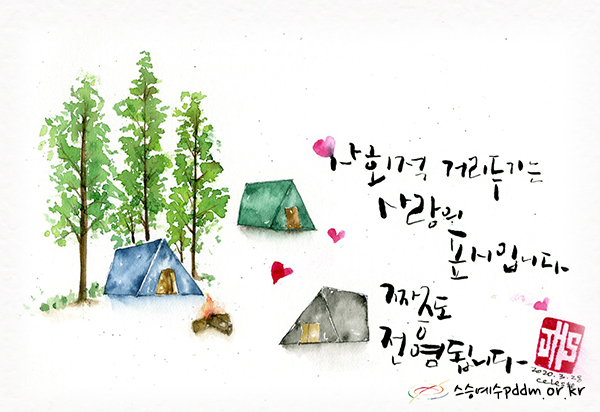 사회적 거리두기는
사랑의
표시입니다.
짜증도
전염됩니다.
JHS
2020.3.28
celeste
스승예수pddm.or.kr